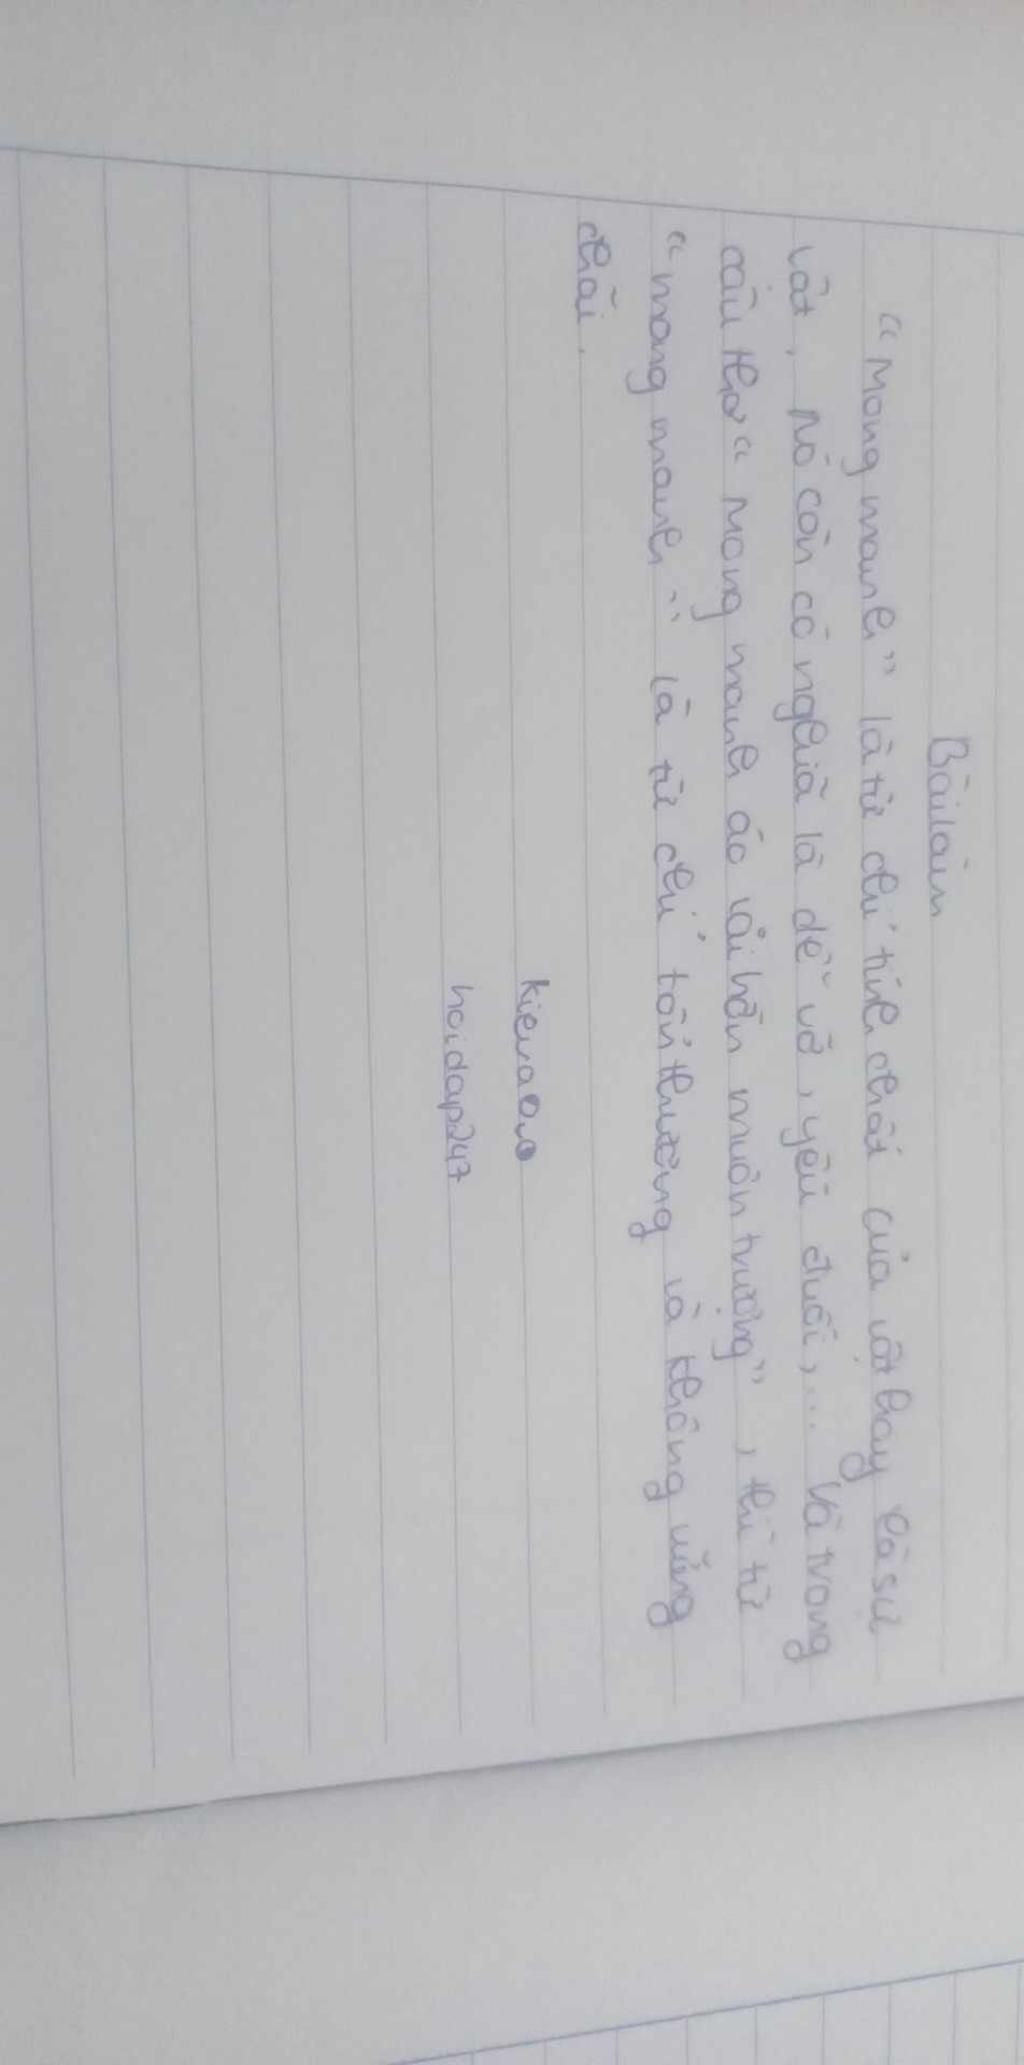 Bài làm
"Mong manh" là từ chỉ tính chất của vật hay là sự
vật, nó còn có nghĩa là dễ vỡ, yếu đuối,... Và trong
câu thơ "Mong manh áo vải hồn muôn trượng", thì từ
"mong manh" là từ chỉ tổn thương và không vững
chãi.
kienaao
hoidap247